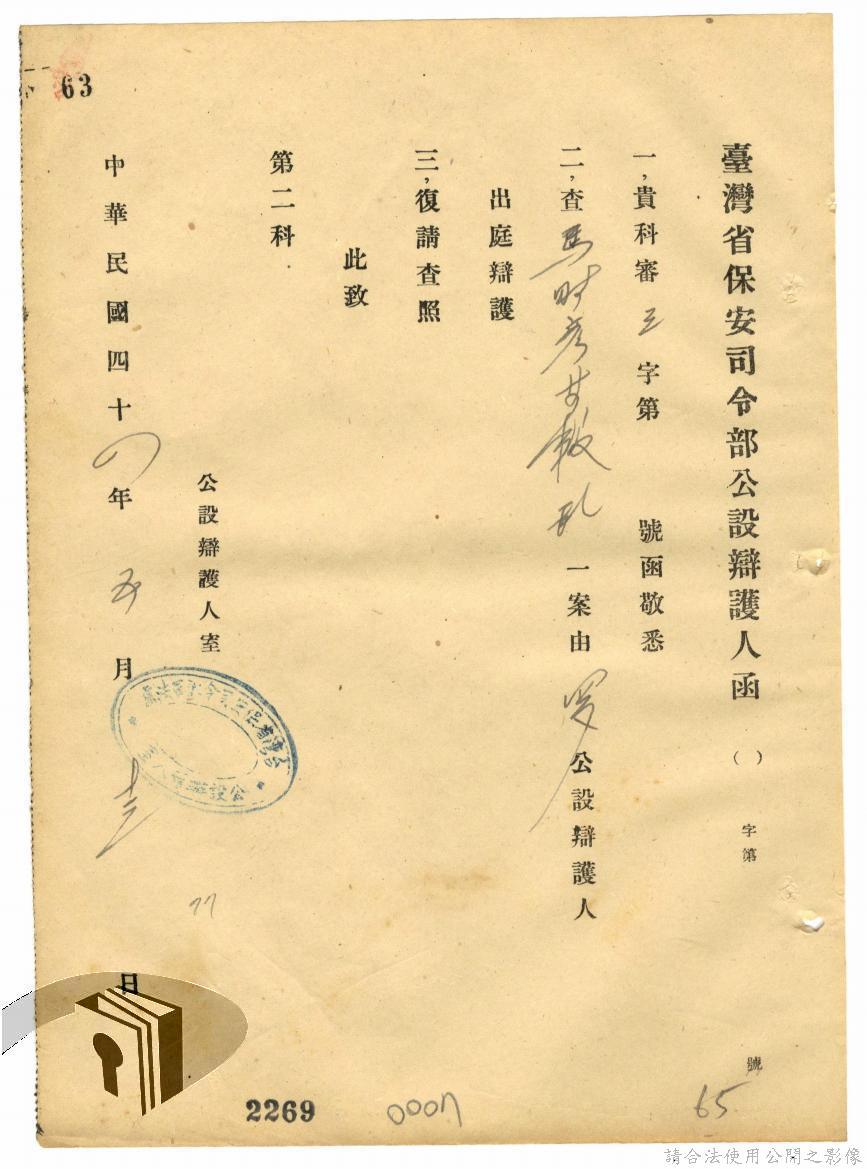 臺灣省保安司令部公設辯護人函 ( ) 字第 號
65
一,貴科審三字第 號函敬悉
二,查馬時彥等叛亂一案由 公設辯護人
出庭辯護
三,復請查照
此致
第二科
公設辯護人室
中華民國四十 年五月十三日
77
63
2269
0007
請合法使用公開之影像